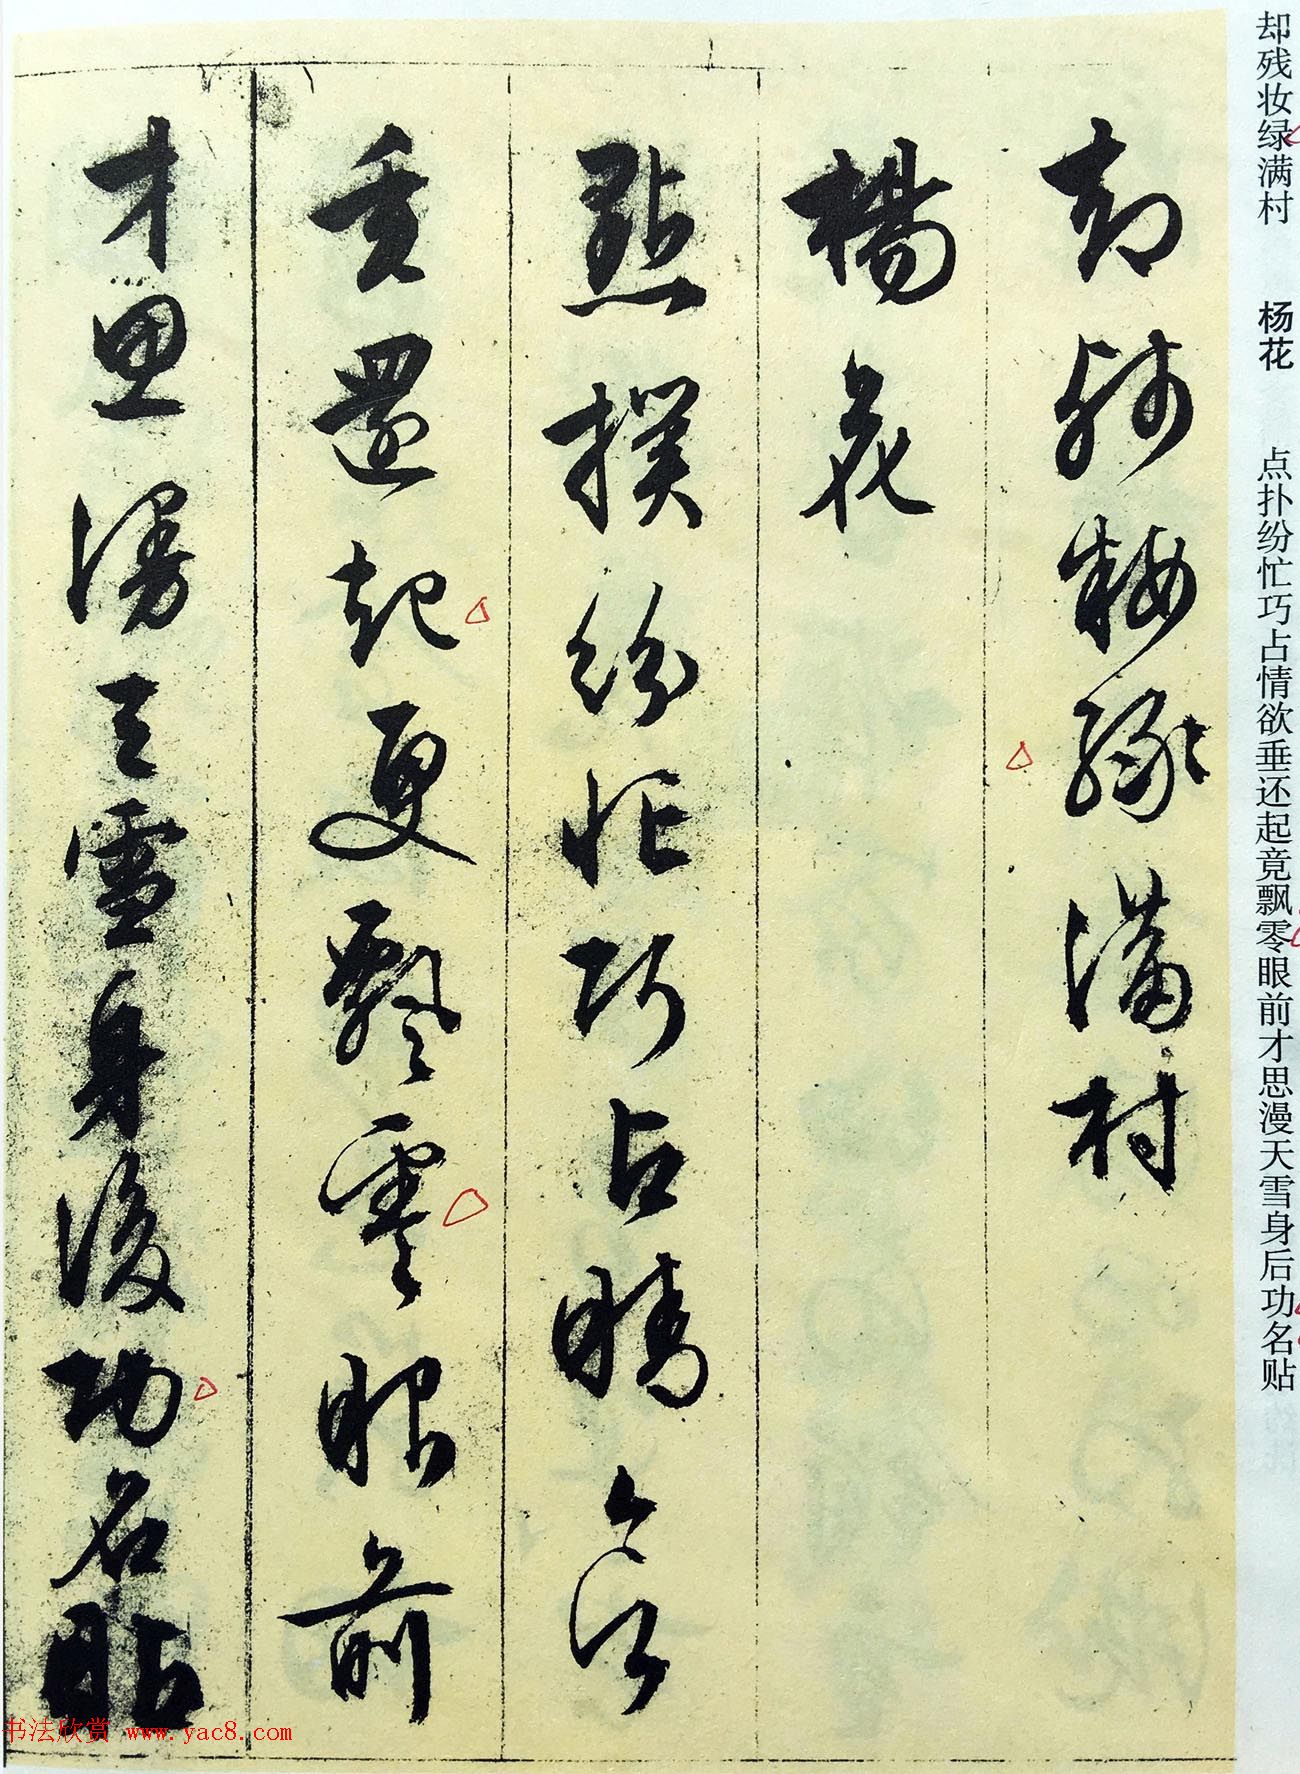 却残妆绿满村 杨花 点扑纷忙巧占情欲垂还起竟飘零眼前才思漫天雪身后功名贴
却殘粧綠滿村
楊花
點撲紛忙巧占晴欲
垂還起更飄零眼前
才思漫天雪身後功名貼
书法欣赏 www.yac8.com